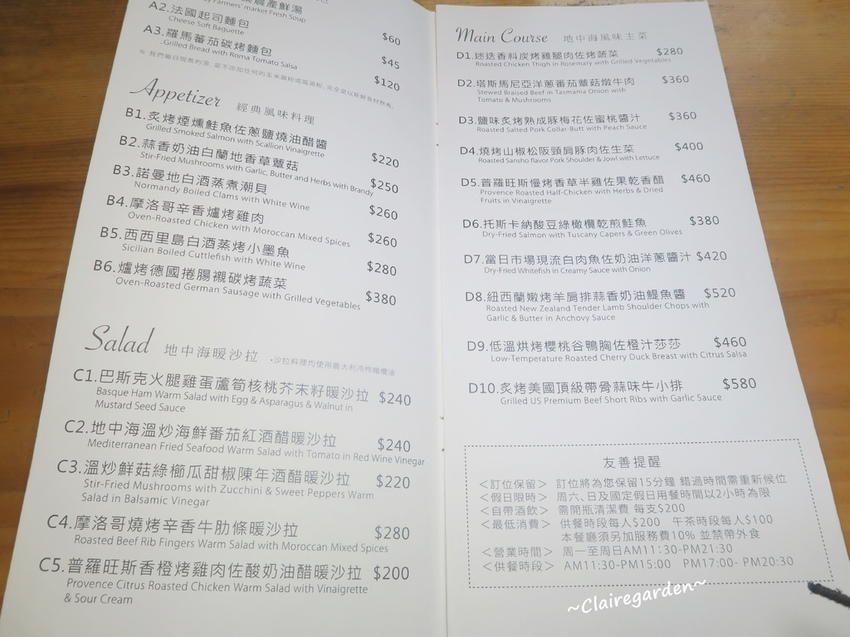 Farmers' market Fresh Soup
A2.法國起司麵包
Cheese Soft Baguette
$60
A3.羅馬蕃茄碳烤麵包
Grilled Bread with Roma Tomato Salsa
$45
$120
Appetizer 經典風味料理
B1.炙烤煙燻鮭魚佐蔥鹽燒油醋醬
Grilled Smoked Salmon with Scallion Vinaigrette
$220
B2.蒜香奶油白蘭地香草蕈菇
Stir-Fried Mushrooms with Garlic, Butter and Herbs with Brandy
$250
B3.諾曼地白酒蒸煮潮貝
Normandy Boiled Clams with White Wine
$260
B4.摩洛哥辛香爐烤雞肉
Oven-Roasted Chicken with Moroccan Mixed Spices
$260
B5.西西里島白酒蒸烤小墨魚
Sicilian Boiled Cuttlefish with White Wine
$280
B6.爐烤德國捲腸襯碳烤蔬菜
Oven-Roasted German Sausage with Grilled Vegetables
$380
Salad 地中海暖沙拉 •沙拉料理均使用義大利冷榨橄欖油
C1.巴斯克火腿雞蛋蘆筍核桃芥末籽暖沙拉 $240
Basque Ham Warm Salad with Egg & Asparagus & Walnut in
Mustard Seed Sauce
C2.地中海溫炒海鮮番茄紅酒醋暖沙拉 $240
Mediterranean Fried Seafood Warm Salad with Tomato in Red Wine Vinegar
C3.溫炒鮮菇綠櫛瓜甜椒陳年酒醋暖沙拉 $220
Stir-Fried Mushrooms with Zucchini & Sweet Peppers Warm
Salad in Balsamic Vinegar
C4.摩洛哥燒烤辛香牛肋條暖沙拉 $280
Roasted Beef Rib Fingers Warm Salad with Moroccan Mixed Spices
C5.普羅旺斯香橙烤雞肉佐酸奶油醋暖沙拉 $200
Provence Citrus Roasted Chicken Warm Salad with Vinaigrette
& Sour Cream
Main Course 地中海風味主菜
D1.迷迭香料炭烤雞腿肉佐烤蔬菜 $280
Roasted Chicken Thigh in Rosemary with Grilled Vegetables
D2.塔斯馬尼亞洋蔥番茄蕈菇燉牛肉 $360
Stewed Braised Beef in Tasmania Onion with
Tomato & Mushrooms
D3.鹽味炙烤熟成豚梅花佐蜜桃醬汁 $360
Roasted Salted Pork Collar-Butt with Peach Sauce
D4.燒烤山椒松阪頸肩豚肉佐生菜 $400
Roasted Sansho flavor Pork Shoulder & Jowl with Lettuce
D5.普羅旺斯慢烤香草半雞佐果乾香醋 $460
Provence Roasted Half-Chicken with Herbs & Dried
Fruits in Vinaigrette
D6.托斯卡納酸豆綠橄欖乾煎鮭魚 $380
Dry-Fried Salmon with Tuscany Capers & Green Olives
D7.當日市場現流白肉魚佐奶油洋蔥醬汁 $420
Dry-Fried Whitefish in Creamy Sauce with Onion
D8.紐西蘭嫩烤羊肩排蒜香奶油鯷魚醬 $520
Roasted New Zealand Tender Lamb Shoulder Chops with
Garlic & Butter in Anchovy Sauce
D9.低溫烘烤櫻桃谷鴨胸佐橙汁莎莎 $460
Low-Temperature Roasted Cherry Duck Breast with Citrus Salsa
D10.炙烤美國頂級帶骨蒜味牛小排 $580
Grilled US Premium Beef Short Ribs with Garlic Sauce
友善提醒
＜訂位保留＞ 訂位將為您保留15分鐘 錯過時間需重新候位
＜假日限時＞ 周六、日及國定假日用餐時間以2小時為限
＜自帶酒飲＞ 需開瓶清潔費 每支$200
＜最低消費＞ 供餐時段每人$200 午茶時段每人$100
本餐廳須另加服務費10% 並禁帶外食
＜營業時間＞ 周一至周日AM11:30-PM21:30
＜供餐時段＞ AM11:30-PM15:00 PM17:00- PM20:30
~Clairegarden~